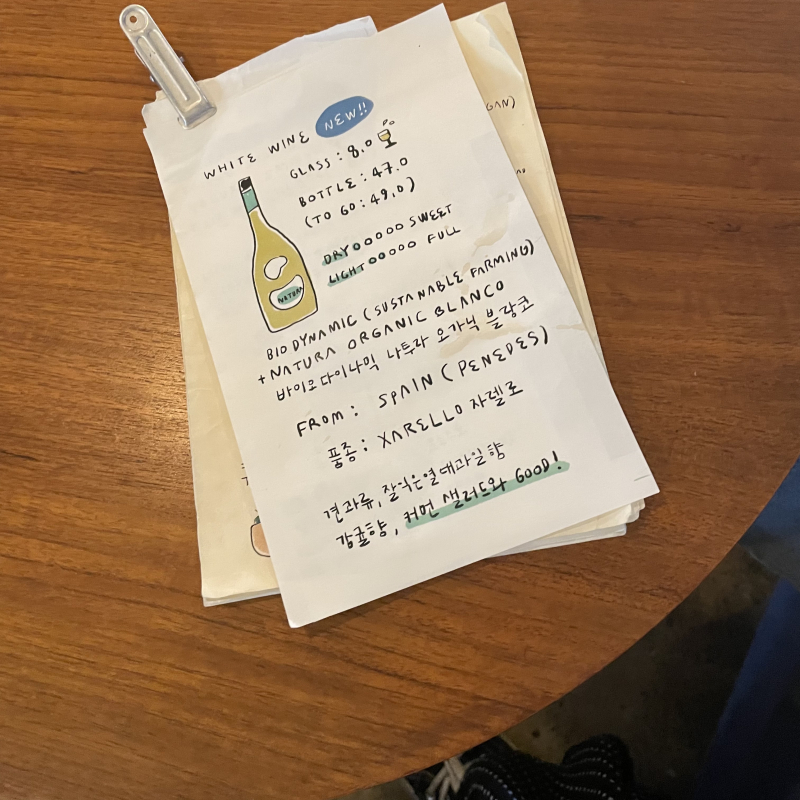 WHITE WINE NEW!!
GLASS : 8.0
BOTTLE : 47.0
(TO GO : 49.0)
DRY ooooo SWEET
LIGHT ooooo FULL
NATURA
BIODYNAMIC (SUSTANABLE FARMING)
+ NATURA ORGANIC BLANCO
바이오다이나믹 나투라 오가닉 블랑코
FROM : SPAIN (PENEDES)
품종 : XARELLO 자렐로
견과류, 잘익은열대과일향
감귤향, 커먼 샐러드와 GOOD!
GAN)